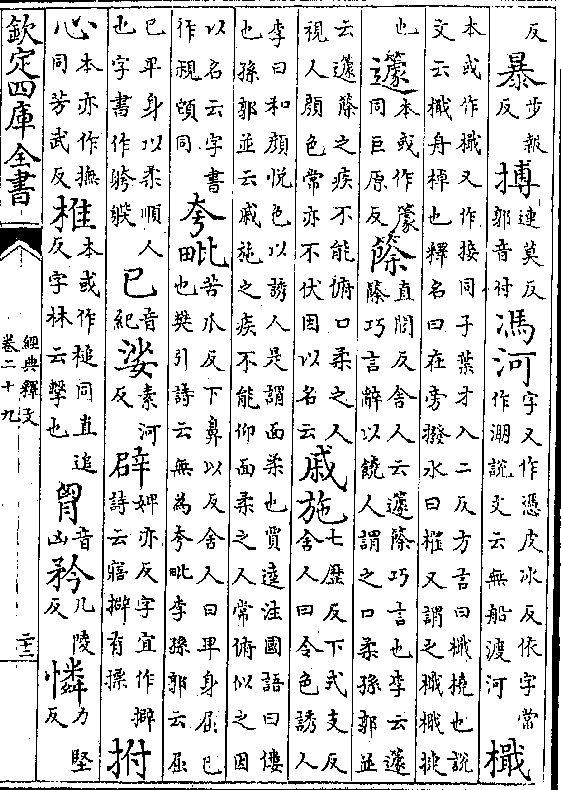 反暴步報反搏連莫反郭音付馮河字又作憑皮冰反依字當作淜說文云無船渡河檝
本或作檝又作接同子葉才入二反方言曰檝橈也說文云檝舟棹也釋名曰在旁撥水曰櫂又謂之檝檝捷
也籧本或作同巨反蒢直閭反舍人云籧蒢巧言也李云籧蒢巧言辭以饒人謂之口柔孫郭並
云籧蒢之疾不能俯口柔之人視人顏色常亦不伏因以名云戚施七歷反下式支反舍人曰令色誘人
李曰和顏悅色以誘人是謂面柔也賈逵注國語曰僂也孫郭並云戚施之疾不能仰面柔之人常俯似之因
以名云字書作同夸毗苦瓜反下鼻以反舍人曰卑身屈已也樊引詩云無為夸毗李孫郭云屈
已卑身以柔順人也字書作已音紀娑素河反辟婢亦反字宜作擗詩云寤擗有摽拊
心本亦作撫同芳武反椎本或作槌同直追反字林云擊也胷音凶矜几陵反憐力堅反
欽定四庫全書
經典釋文
卷二十九
二十二